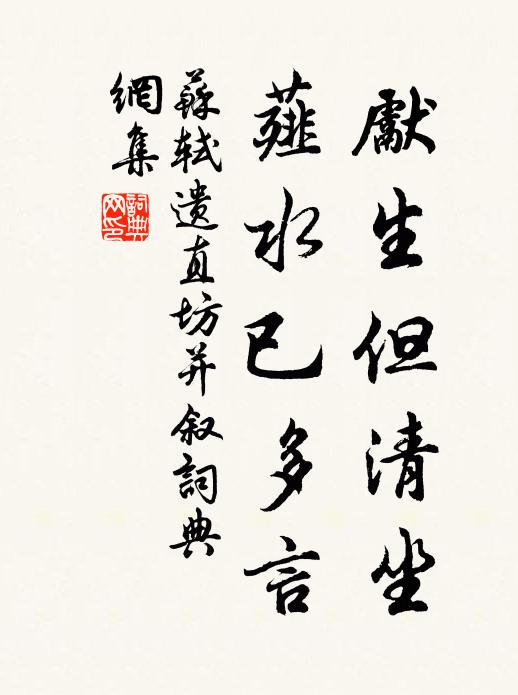 獻生但清坐
薤水已多言
蘇軾遺直坊并叙詞典
網集
詞典
网印